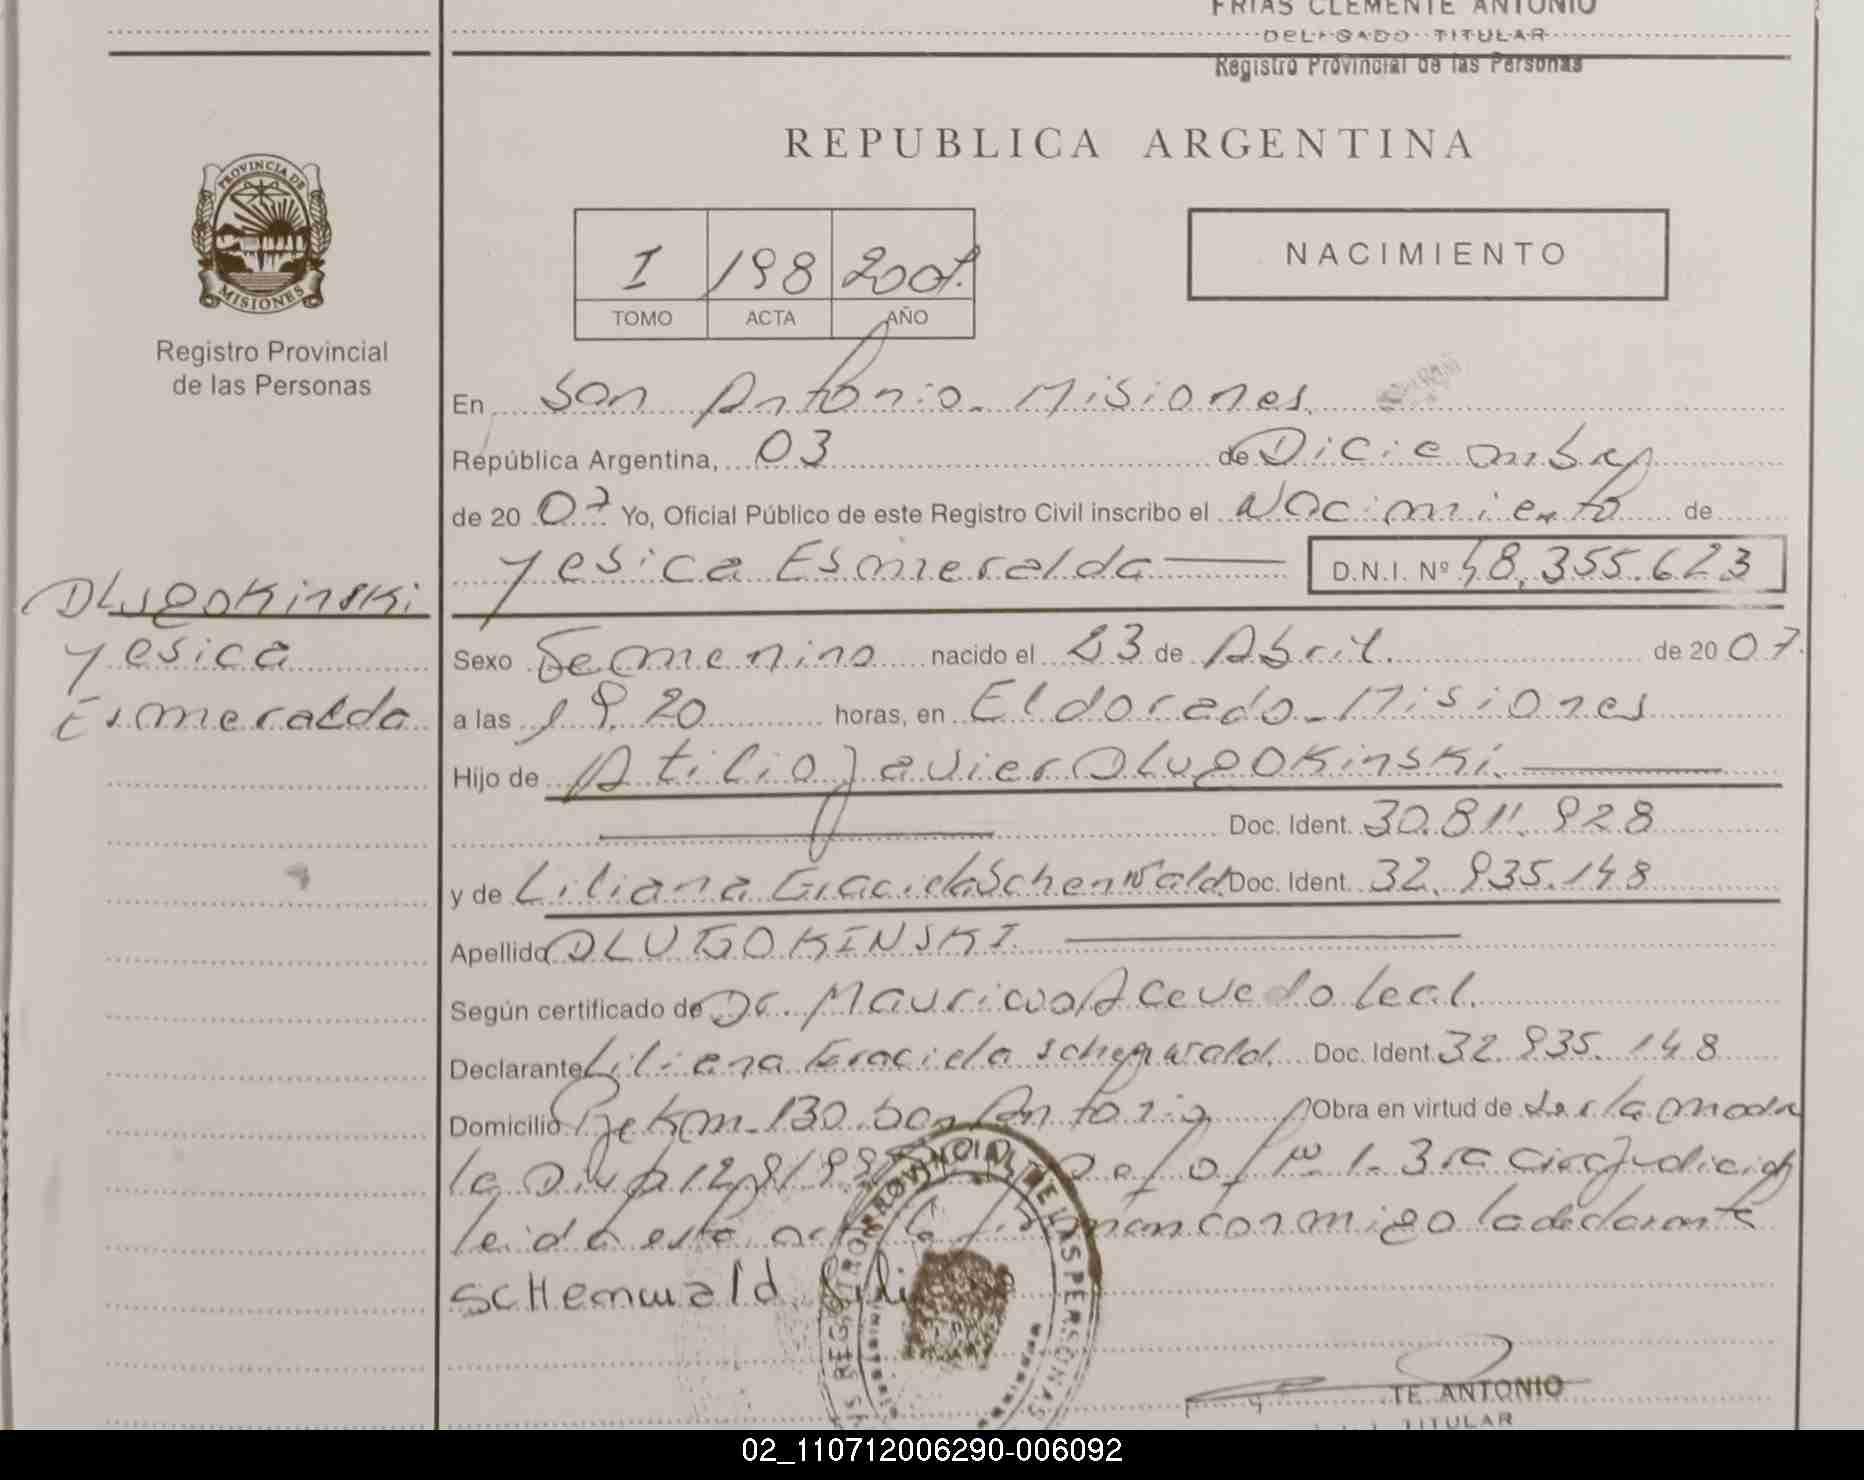 FRIAS CLEMENTE ANTONIO
DELEGADO TITULAR
Registro Provincial de las Personas
REPUBLICA ARGENTINA
PROVINCIA DE
MISIONES
Registro Provincial
de las Personas
I 198 2007.
TOMO ACTA AÑO
NACIMIENTO
En San Antonio - Misiones.
República Argentina, 03 de Diciembre
de 20 07 Yo, Oficial Público de este Registro Civil inscribo el Nacimiento de
Yesica Esmeralda D.N.I. Nº 48.355.623
Dlugokinski
Yesica
Esmeralda
Sexo Femenino nacido el 23 de Abril de 20 07.
a las 19.20 horas, en Eldorado - Misiones
Hijo de Atilio Javier Dlugokinski.
Doc. Ident. 30.811.928
y de Liliana Graciela Schenwald Doc. Ident. 32.935.148
Apellido DLUGOKINSKI
Según certificado de Dr. Mauricio Acevedo Leal.
Declarante Liliana Graciela Schenwald. Doc. Ident. 32.935.148
Domicilio Km. 130 San Antonio Obra en virtud de
la 3ra Judicial
leida esta acta la firman conmigo la declarante
scHenwald
REGISTRO PROVINCIAL DE LAS PERSONAS
TE ANTONIO
TITULAR
02_110712006290-006092